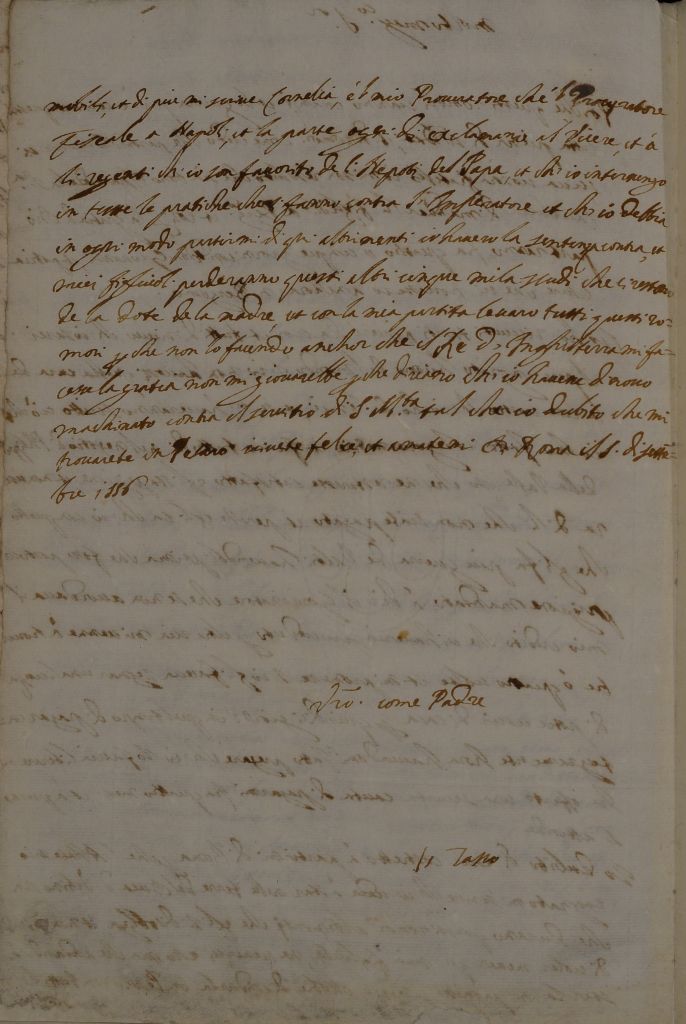 mobili, et di piu mi scrive Cornelia, e'l mio Procuratore che è il Procuratore
Fiscale a Napoli, et la parte ogni dì exclamano al Vicere, et à
li regenti ch'io son favorito de li Nepoti del Papa, et ch'io intervengo
in tutte le pratiche che si fanno contra l'Imperatore et ch'io debbia
in ogni modo partirmi di qui altrimenti io havero la sentenza contra, et
miei figliuoli perderanno questi altri cinque mila scudi che li restano
de la dote de la madre, et con la mia partita levarò tutti questi ro-
mori, che non lo facendo anchor che il Re d'Inghilterra mi fa-
cesse la gratia non mi giovarebbe che diranno ch'io havea di novo
machinato contra il servitio di S. M.tà tal che io dubito che mi
trovarete in Pesaro vivete felice, et amatemi Di Roma il di sette-
bre 1556
come Padre
Tasso